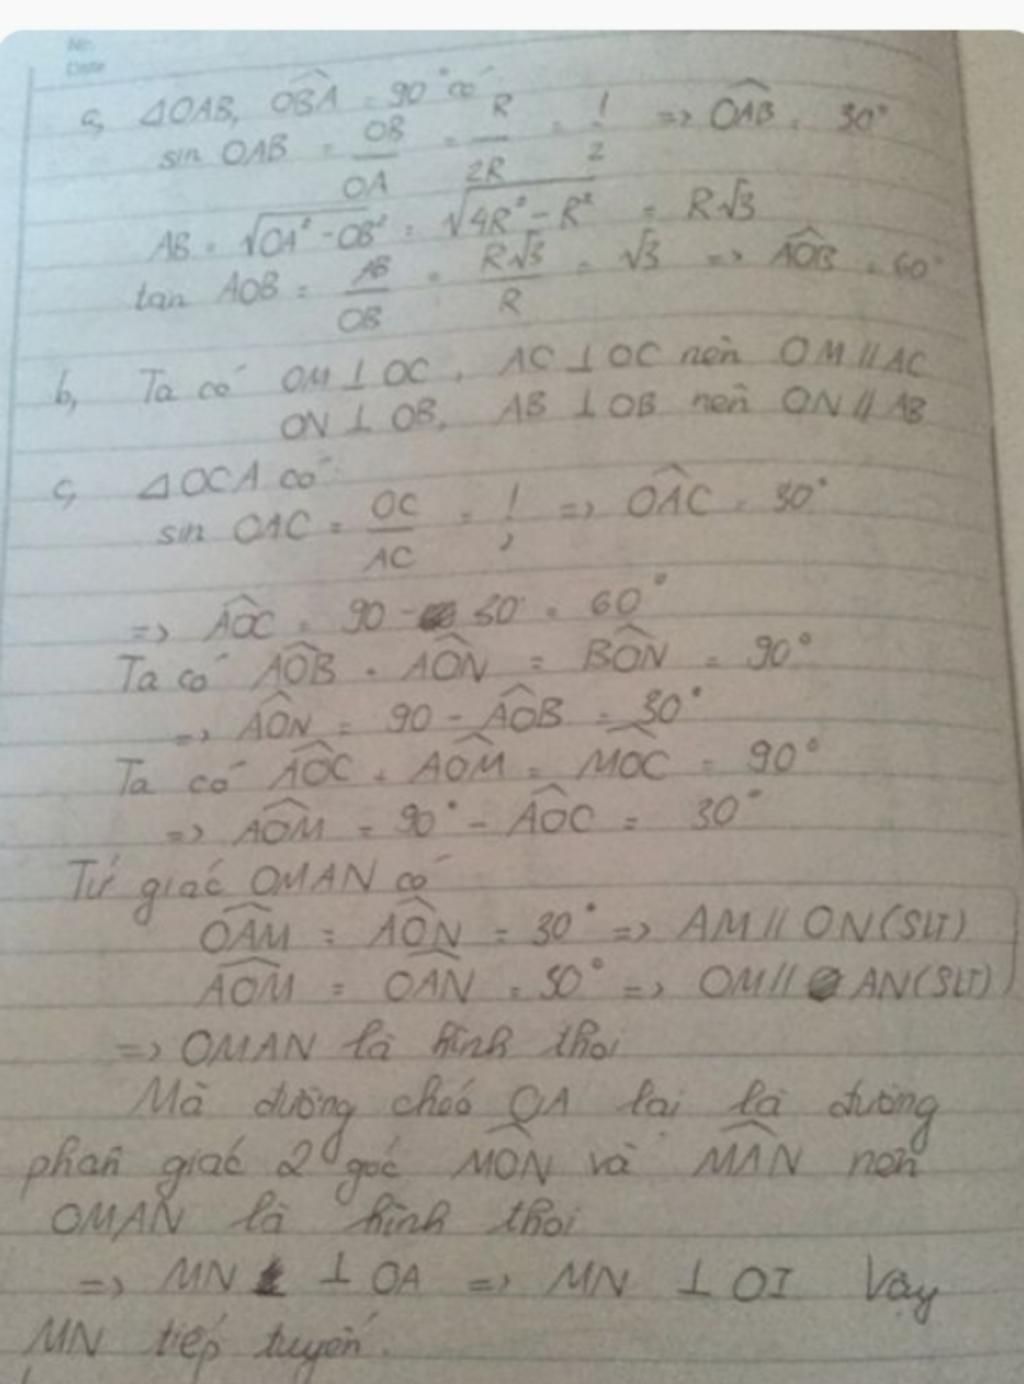 No.
Date
a, ΔOAB, OBA = 90° có
sin OAB = OB/OA = R/2R = 1/2 => OAB = 30°
AB = √OA² - OB² = √4R² - R² = R√3
tan AOB = AB/OB = R√3/R = √3 => AOB = 60°
b, Ta có OM ⊥ OC, AC ⊥ OC nên OM // AC
ON ⊥ OB, AB ⊥ OB nên ON // AB
c, ΔOCA có
sin OAC = OC/AC = 1/2 => OAC = 30°
=> AOC = 90 - 30 = 60°
Ta có AOB + AON = BON = 90°
=> AON = 90 - AOB = 30°
Ta có AOC + AOM = MOC = 90°
=> AOM = 90° - AOC = 30°
Tứ giác OMAN có
OAM = AON = 30° => AM // ON (SLT)
AOM = OAN = 30° => OM // AN (SLT)
=> OMAN là hình thoi
Mà đường chéo OA lại là đường
phân giác 2 góc MON và MAN nên
OMAN là hình thoi
=> MN ⊥ OA => MN ⊥ OI Vậy
MN tiếp tuyến.